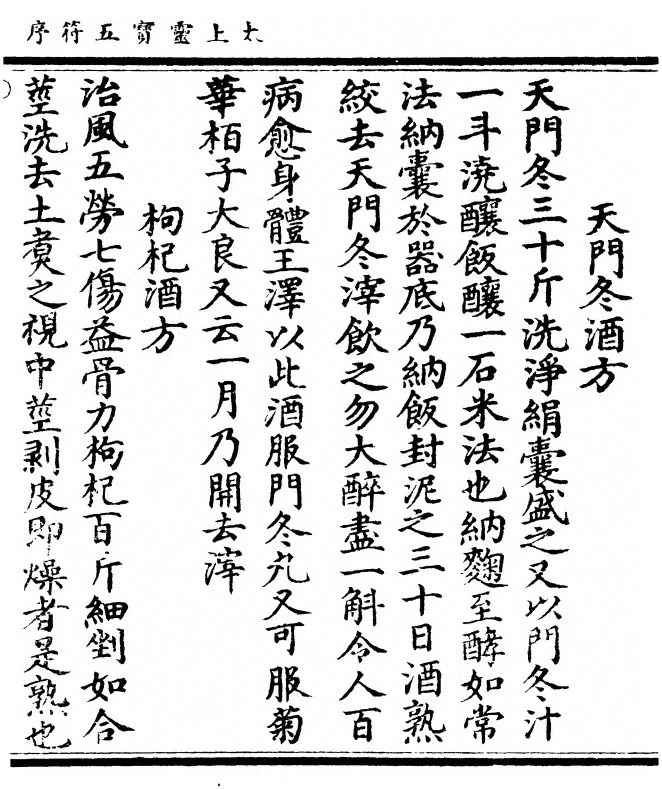 太上靈寶五符序
天門冬酒方
天門冬三十斤洗淨絹囊盛之又以門冬汁
一斗澆釀飯釀一石米法也納麴至酵如常
法納囊於器底乃納飯封泥之三十日酒熟
絞去天門冬滓飲之勿大醉盡一斛令人百
病愈身體玉澤以此酒服門冬丸又可服菊
華栢子大良又云一月乃開去滓
枸杞酒方
治風五勞七傷益骨力枸杞百斤細剉如合
莖洗去土煑之視中莖剥皮即燥者是熟也